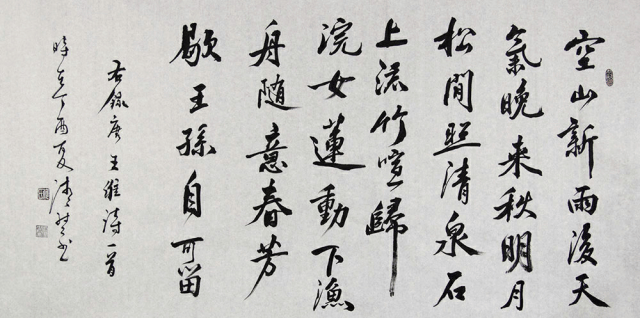 空山新雨後天
氣晚来秋明月
松間照清泉石
上流竹喧歸
浣女蓮動下漁
舟随意春芳
歇王孫自可留
右錄唐王維詩一首
時在丁酉夏